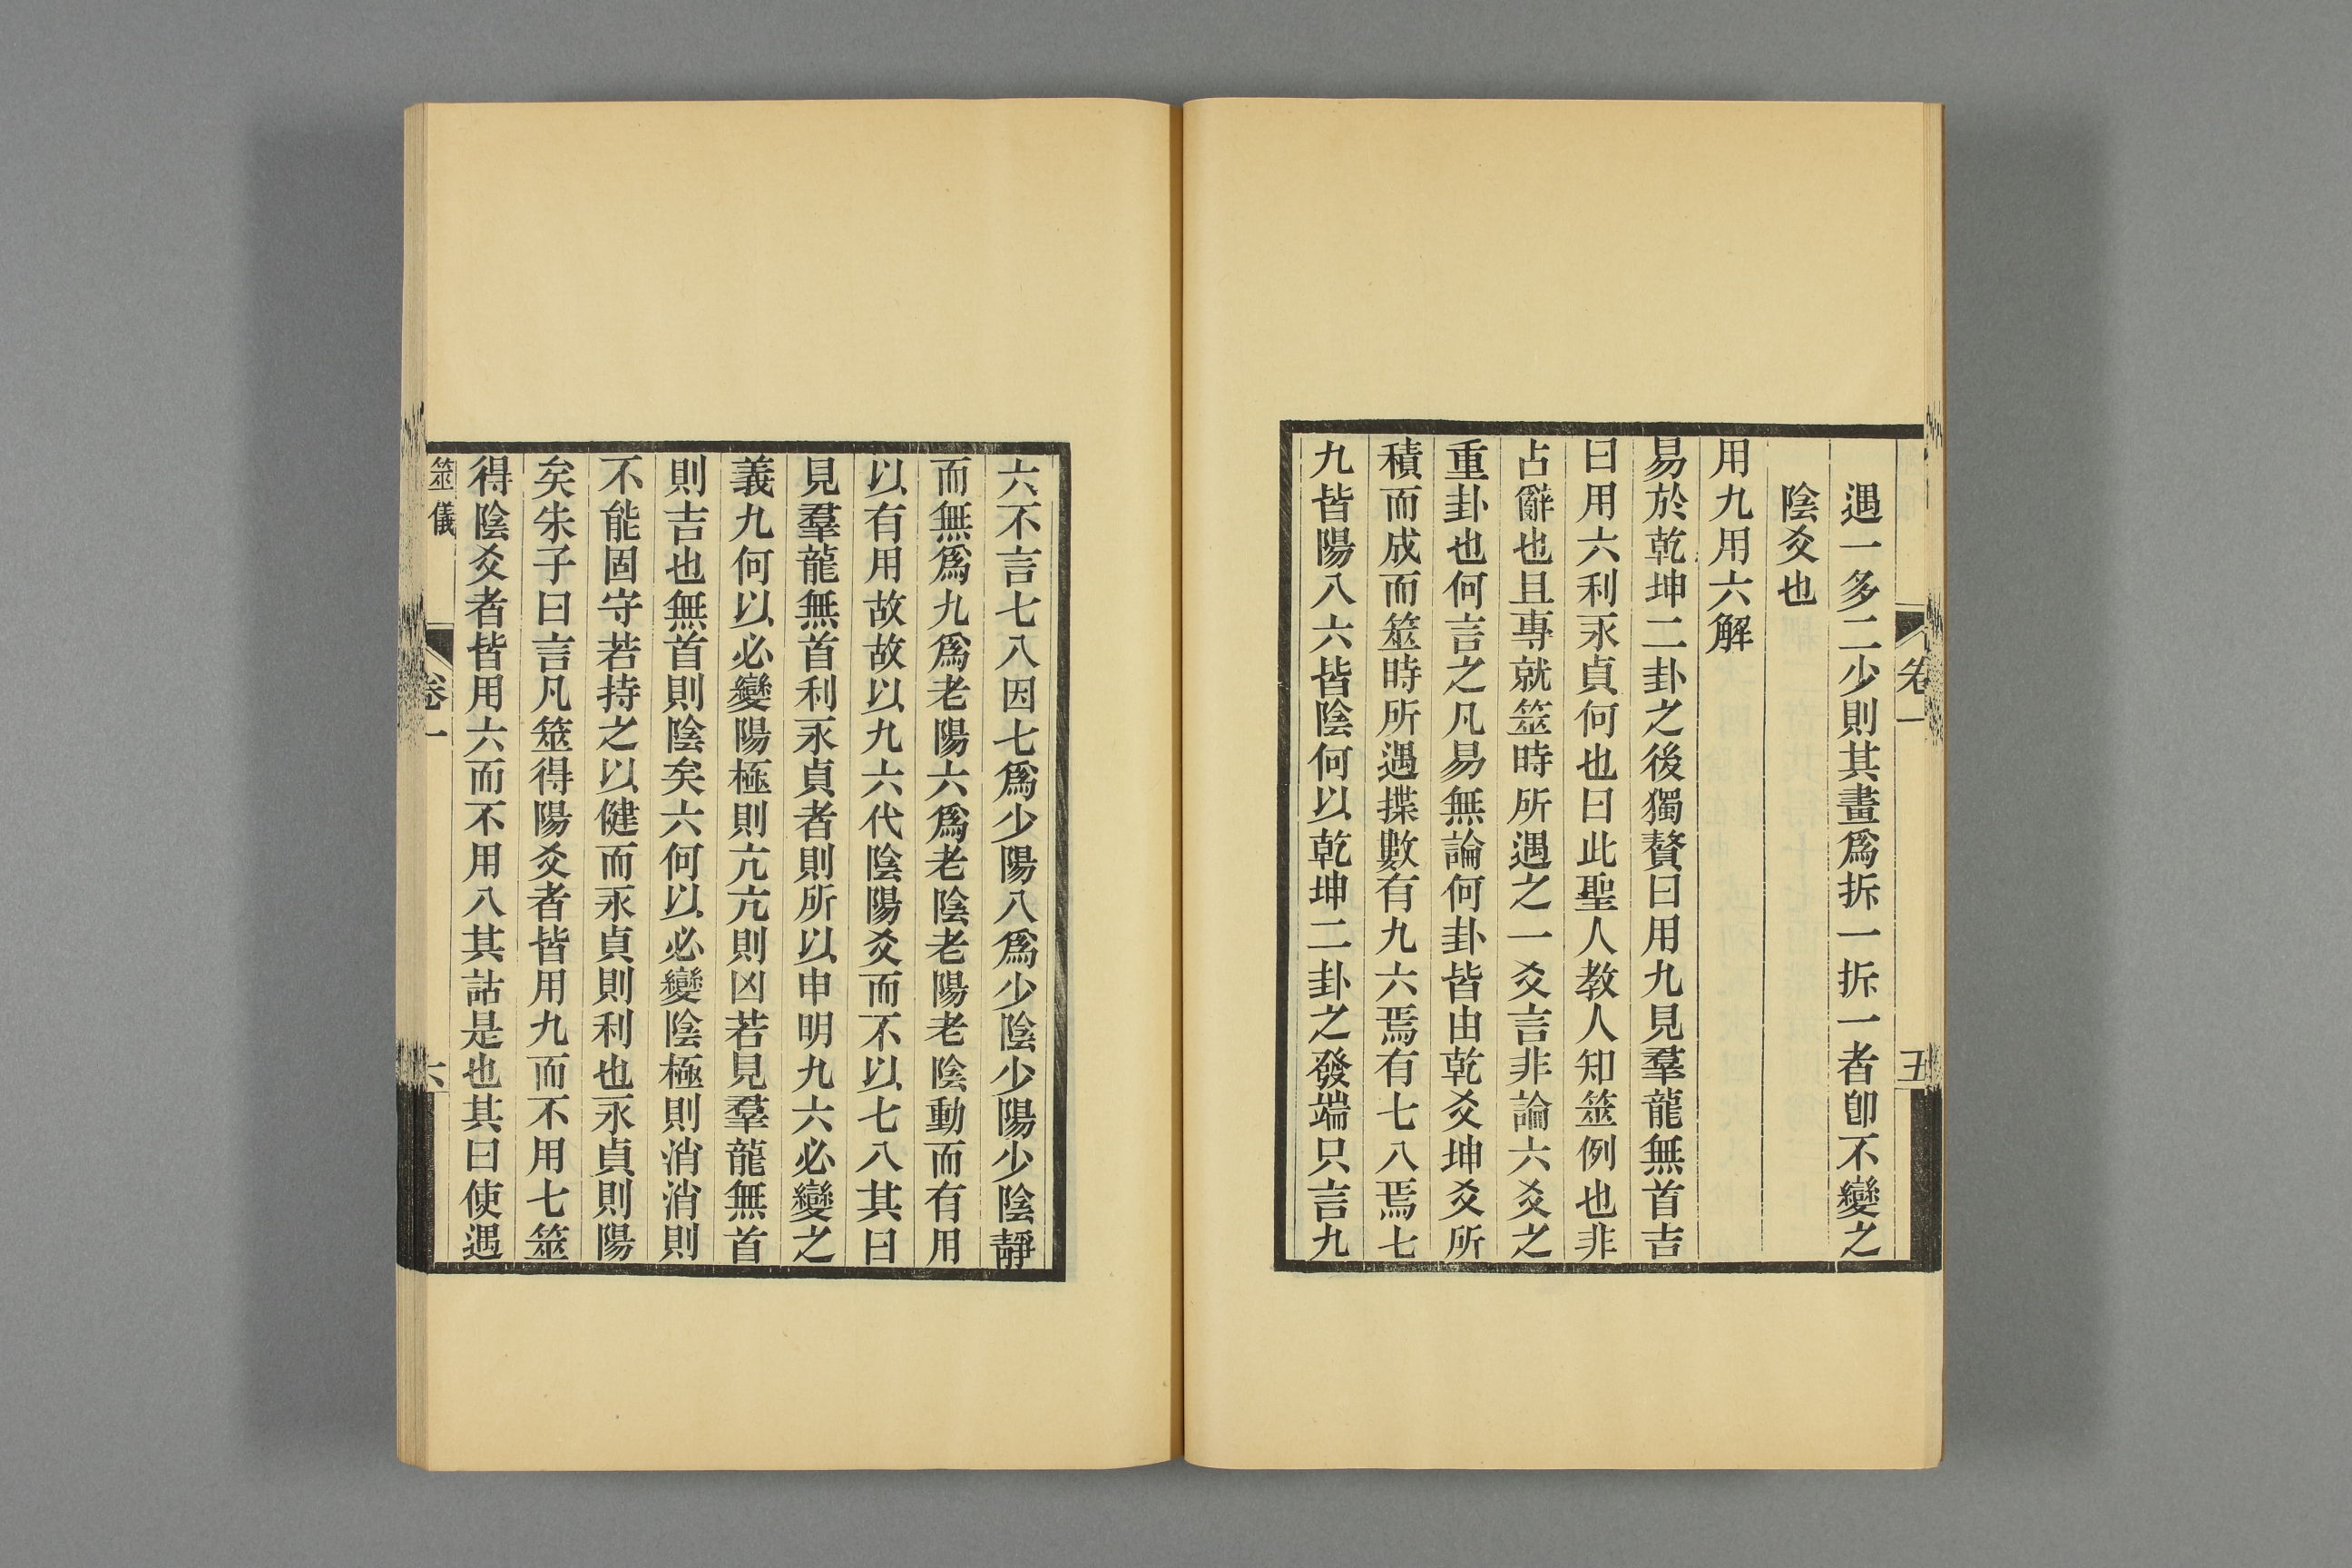 卷一　五
遇一多二少則其畫爲拆一拆一者卽不變之
陰爻也
用九用六解
易於乾坤二卦之後獨贅曰用九見羣龍無首吉
曰用六利永貞何也曰此聖人教人知筮例也非
占辭也且專就筮時所遇之一爻言非論六爻之
重卦也何言之凡易無論何卦皆由乾爻坤爻所
積而成而筮時所遇揲數有九六焉有七八焉七
九皆陽八六皆陰何以乾坤二卦之發端只言九
六不言七八因七爲少陽八爲少陰少陽少陰靜
而無爲九爲老陽六爲老陰老陽老陰動而有用
以有用故故以九六代陰陽爻而不以七八其曰
見羣龍無首利永貞者則所以申明九六必變之
義九何以必變陽極則亢亢則凶若見羣龍無首
則吉也無首則陰矣六何以必變陰極則消消則
不能固守若持之以健而永貞則利也永貞則陽
矣朱子曰言凡筮得陽爻者皆用九而不用七筮
得陰爻者皆用六而不用八其詁是也其曰使遇
筮儀　卷一　六